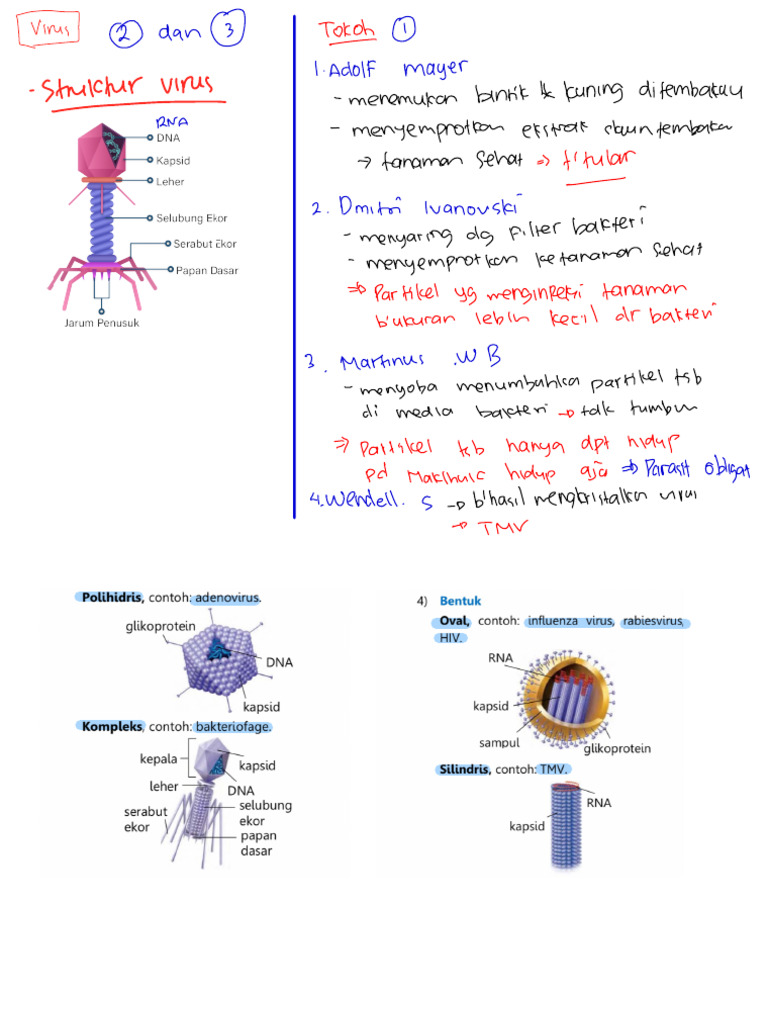 Virus
2 dan 3
- Struktur virus
RNA
DNA
Kapsid
Leher
Selubung Ekor
Serabut Ekor
Papan Dasar
Jarum Penusuk
Tokoh 1
1. Adolf mayer
- menemukan bintik kuning ditembakau
- menyemprotkan ekstrak daun tembakau
→ tanaman sehat ⇒ t'tular
2. Dmitri Ivanovski
- menyaring dg filter bakteri
- menyemprotkan ke tanaman sehat
⇒ Partikel yg menginfeksi tanaman
b'ukuran lebih kecil dr bakteri
3. Martinus .W B
- menyoba menumbuhka partikel tsb
di media bakteri → tdk tumbuh
⇒ Partikel tsb hanya dpt hidup
pd Makhluk hidup aja ⇒ Parasit obligat
4. Wendell. S → b'hasil mengkristalkan virus
→ TMV
Polihidris, contoh: adenovirus.
glikoprotein
DNA
kapsid
Kompleks, contoh: bakteriofage.
kepala
kapsid
leher
DNA
serabut
ekor
selubung
ekor
papan
dasar
4) Bentuk
Oval, contoh: influenza virus, rabiesvirus,
HIV.
RNA
kapsid
sampul
glikoprotein
Silindris, contoh: TMV.
RNA
kapsid